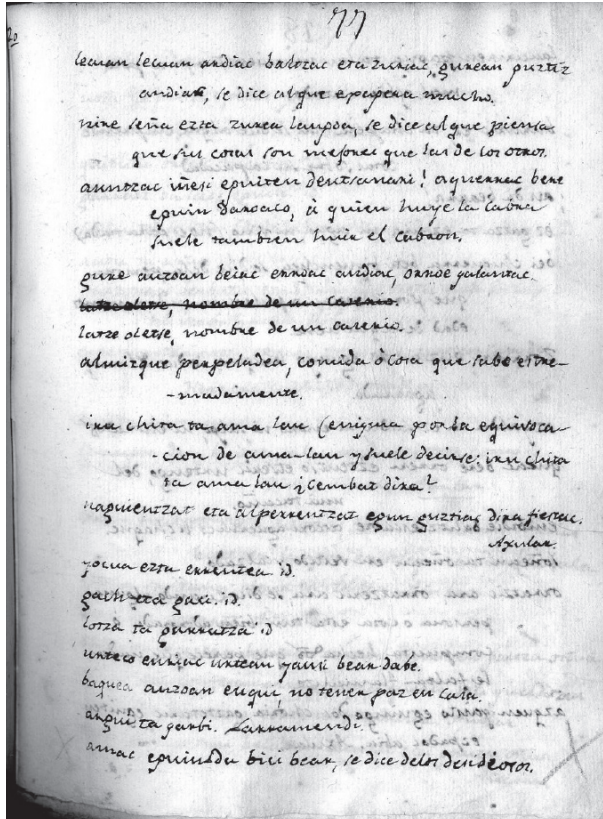 77
lecuan lecuan andiac baltzac eta zuriac, gurean purtzz
andiac, se dice al que exagera mucho.
nire seña ezta zurea langoa, se dice al que piensa
que sus cosas son mejores que las de los otros.
auntzac iñesi eguiten deutsanari! aquerrac bere
eguin daroaco, à quien huye la cabra
suele tambien huir el cabron.
gure auzoan beiac erroac andiac, orroe galantac.
latze oletse, nombre de un caserio.
latze oletse, nombre de un caserio.
almizque perpeladea, comida ò cosa que sabe estre-
-madamente.
iru chita ta ama lau (enigma por la equivoca-
-cion de ama-lau y suele decirse; iru chita
ta ama lau ¿cembat dira?
naguientzat eta alperrentzat egun guztiac dira fiestac.
Axular.
jocua ezta errentea. id.
gazte eta gaci. id.
lotza ta gurrutza id
urteco euriac urtean jausi bear dabe.
baquea auzoan eugui, no tener paz en casa.
argui ta garbi. Larramendi.
amac eguin du bici bear, se dice de los desidiosos.